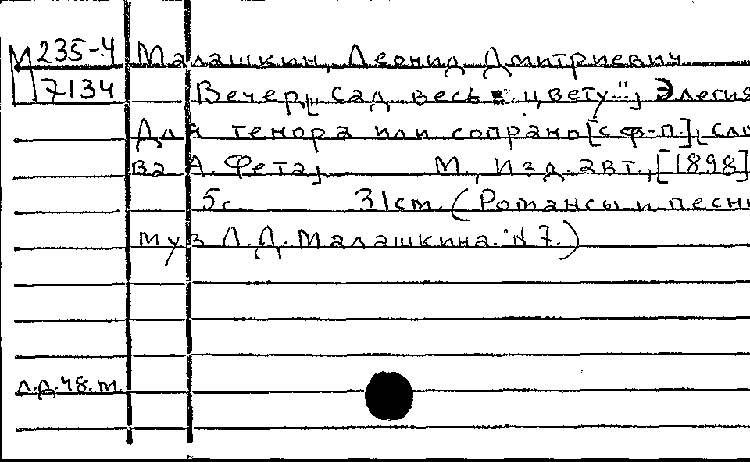 М 235-4 Малашкин, Леонид Дмитриевич
7134 Вечер[„Сад весь в цвету..."] Элегия
Для тенора или сопрано [с ф-п.], сло
ва А. Фета] М., Изд. авт., [1898]
5с 31см. (Романсы и песни
муз Л.Д. Малашкина. N 7.)
л.д. 48. т.